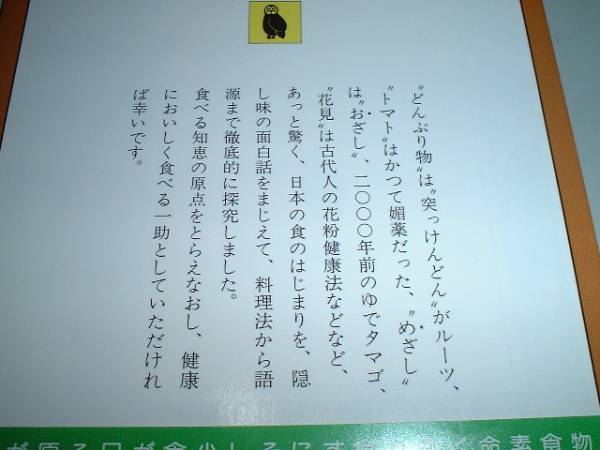 〝どんぶり物〟は〝突っけんどん〟がルーツ、
〝トマト〟はかつて媚薬だった、〝めざし〟
は〝おざし〟、二〇〇〇年前のゆでタマゴ、
〝花見〟は古代人の花粉健康法などなど、
あっと驚く、日本の食のはじまりを、隠
し味の面白話をまじえて、料理法から語
源まで徹底的に探究しました。
食べる知恵の原点をとらえなおし、健康
においしく食べる一助としていただけれ
ば幸いです。